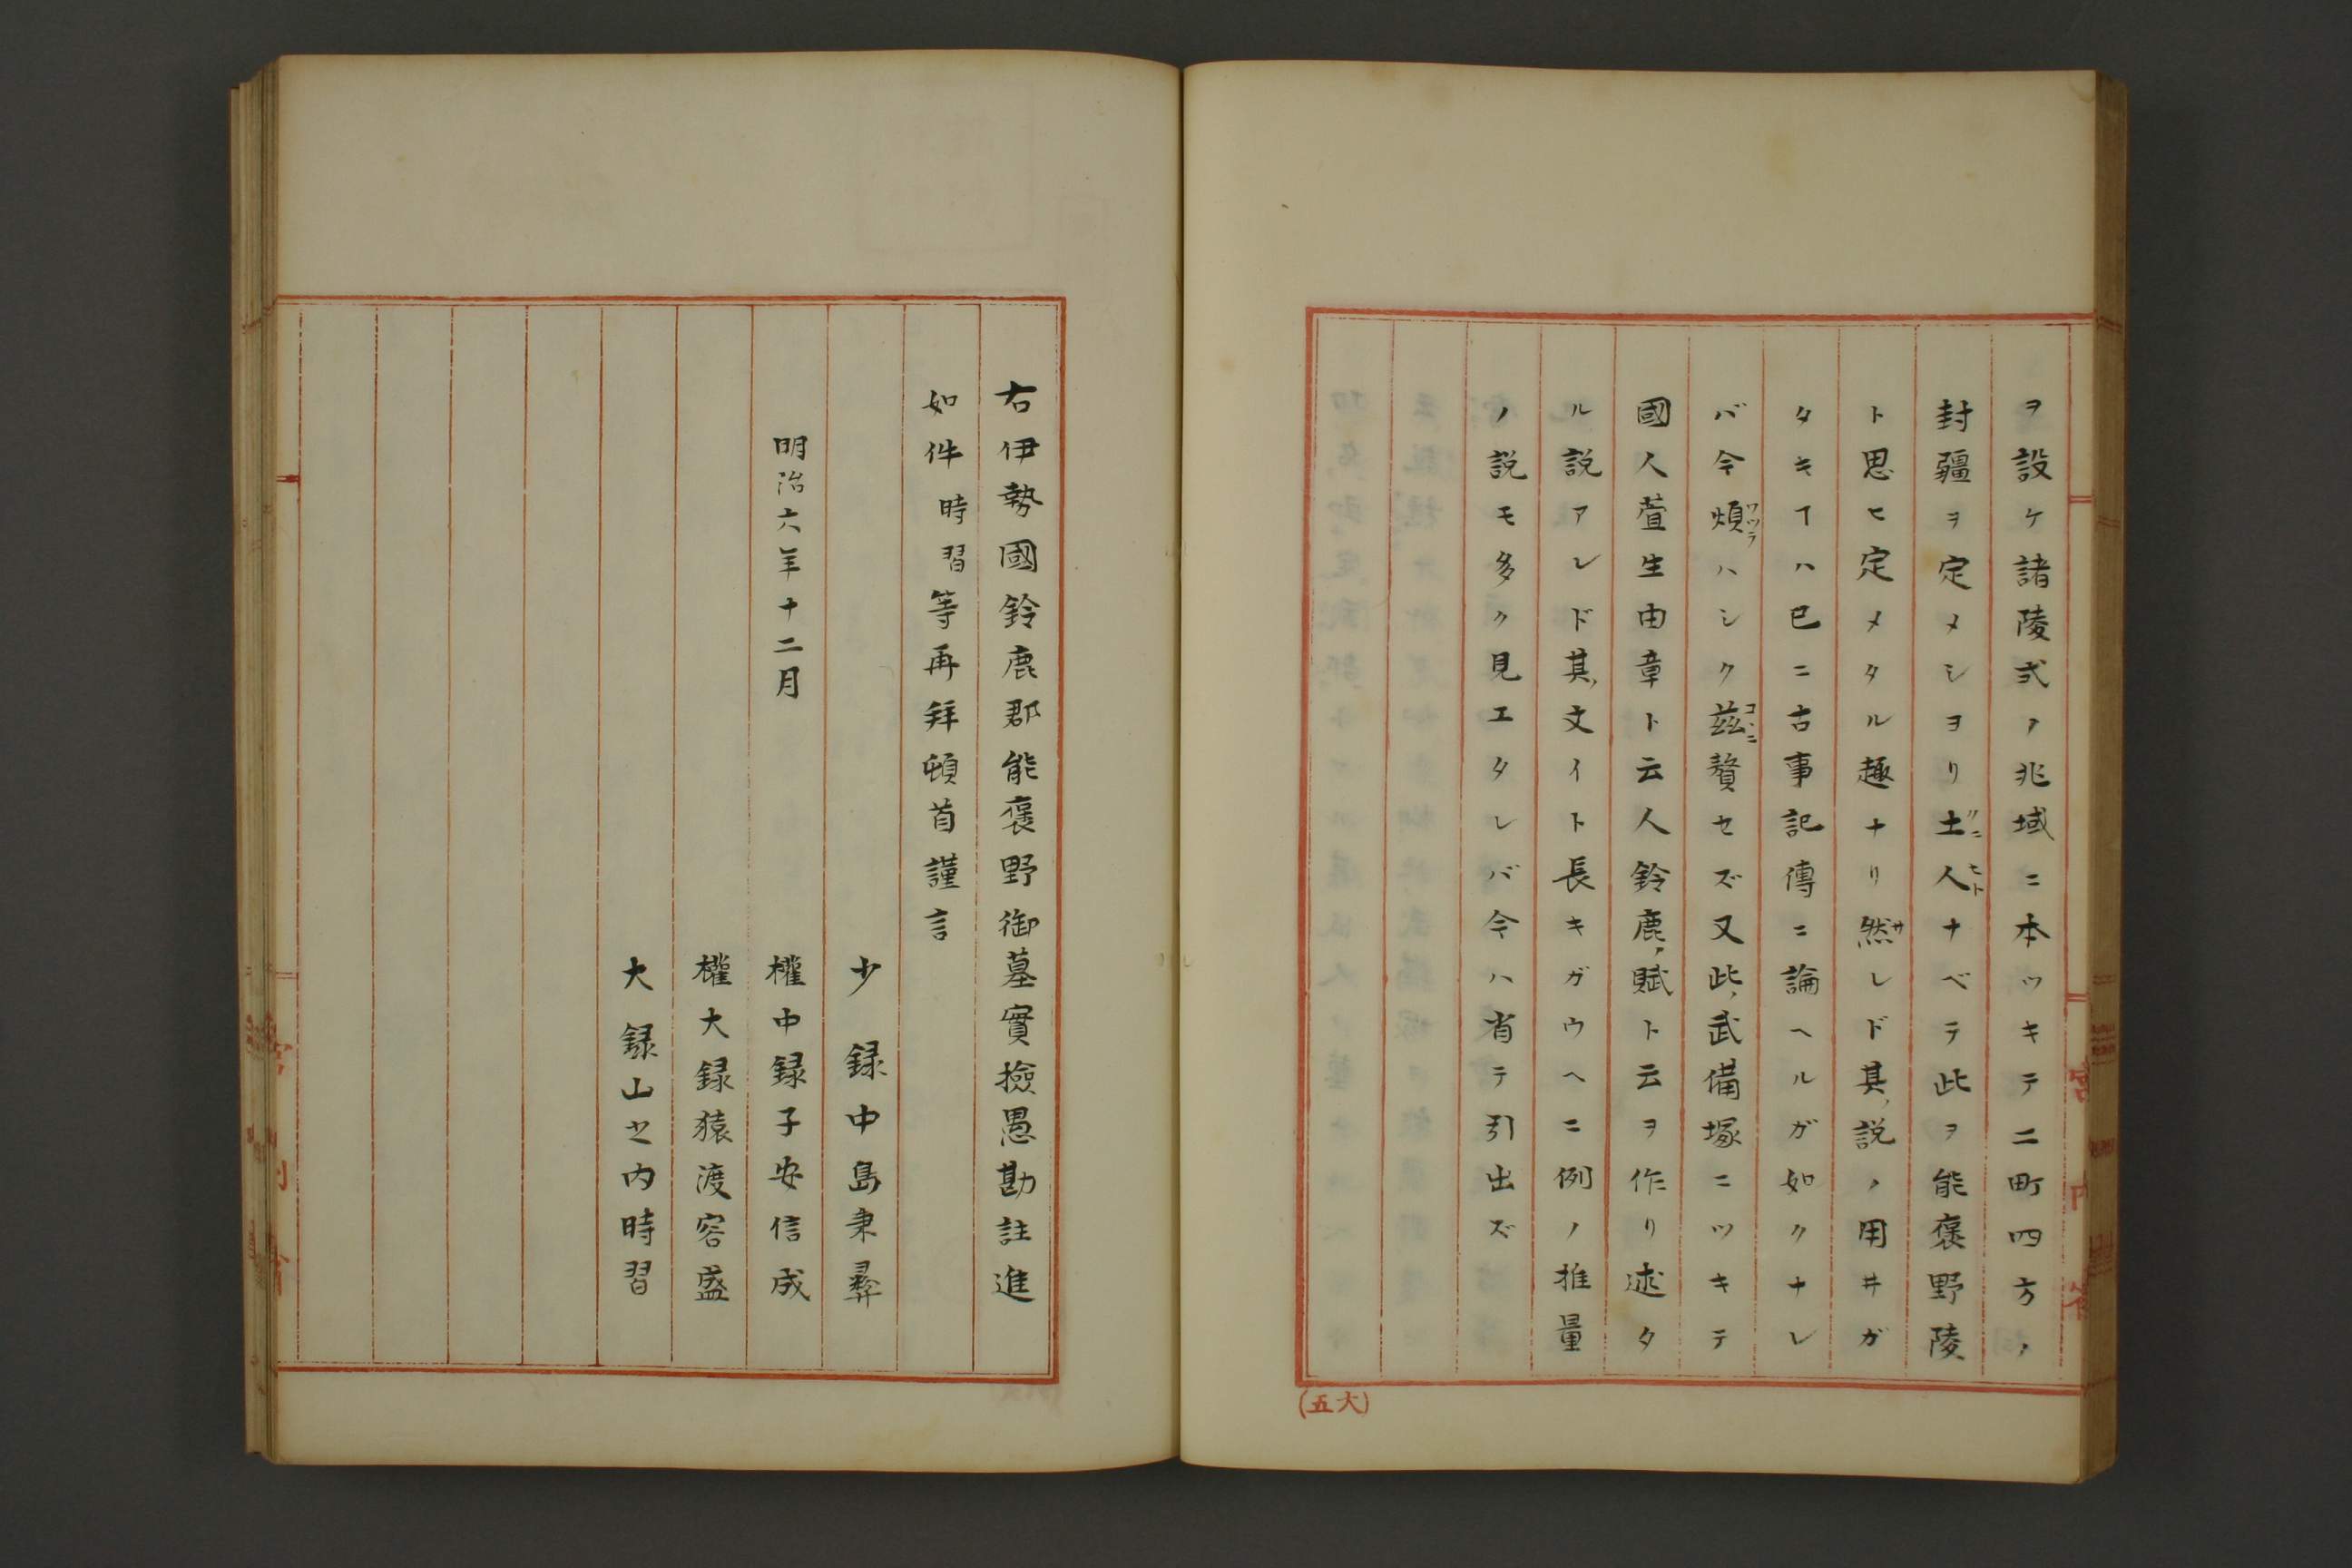 ヲ設ケ諸陵式ノ兆域ニ本ツキテ二町四方ノ
封疆ヲ定メシヨリ土人ナベテ此ヲ能褒野陵
クニヒト
ト思ヒ定メタル趣ナリ然レド其ノ説ノ用井ガ
サ
タキヿハ已ニ古事記傳ニ論ヘルガ如クナレ
バ今煩ハシク茲贅セズ又此ノ武備塚ニツキテ
ワヅラ
コヽニ
國人萱生由章ト云人鈴鹿ノ賦ト云ヲ作リ述タ
ル説アレド其ノ文イト長キガウヘニ例ノ推量
ノ説モ多ク見エタレバ今ハ省テ引出ズ
(五大)
右伊勢國鈴鹿郡能褒野御墓實撿愚勘註進
如件時習等再拜頓首謹言
明治六年十二月
少録中島秉彜
權中録子安信成
權大録猿渡容盛
大録山之内時習